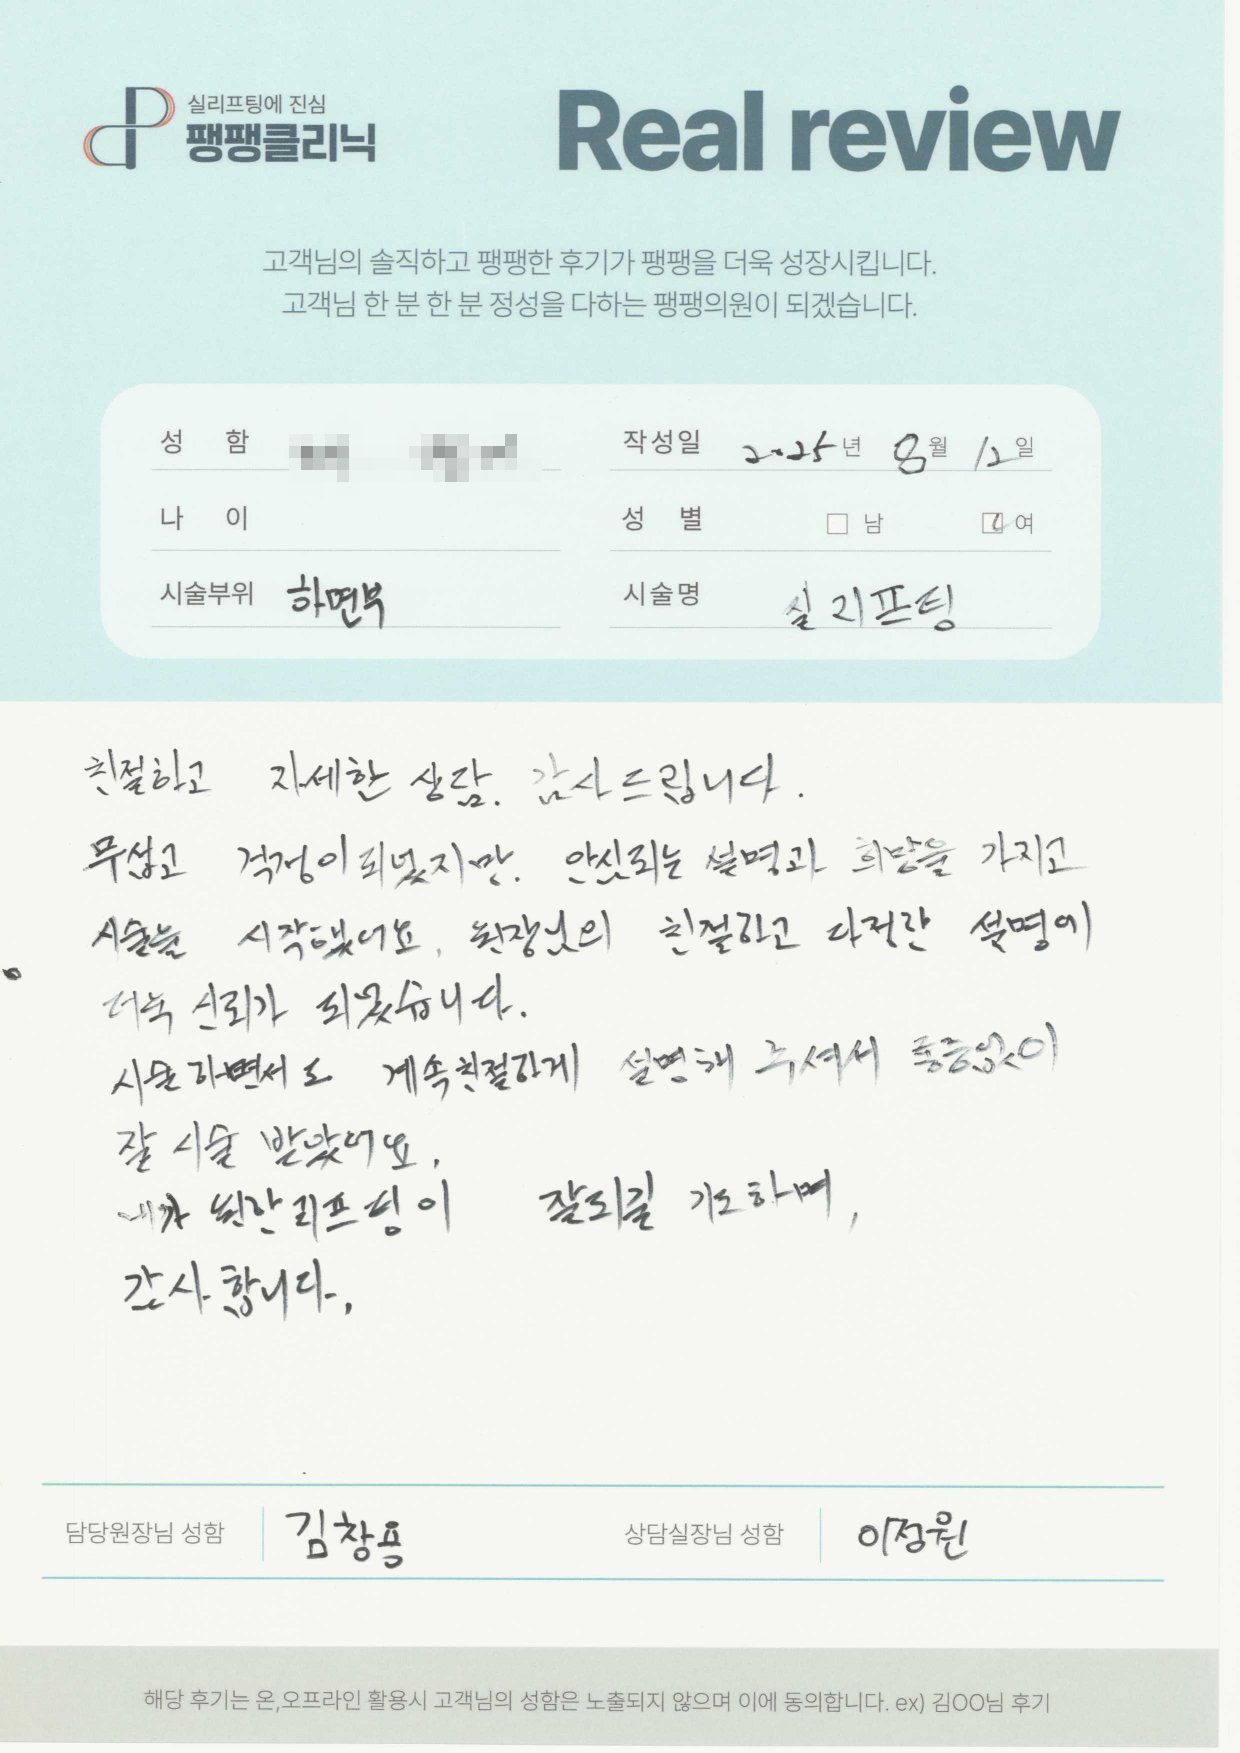 실리프팅에 진심
팽팽클리닉
Real review
고객님의 솔직하고 팽팽한 후기가 팽팽을 더욱 성장시킵니다.
고객님 한 분 한 분 정성을 다하는 팽팽의원이 되겠습니다.
성 함
작성일 2025년 8월 12일
나 이
성 별 남 여
시술부위 하면부
시술명 실리프팅
친절하고 자세한 상담. 감사드립니다.
무섭고 걱정이 되었지만. 안심되는 설명과 희망을 가지고
시술을 시작했어요. 원장님의 친절하고 다정한 설명에
더욱 신뢰가 되었습니다.
시술하면서도 계속 친절하게 설명해 주셔서 통증없이
잘 시술 받았어요.
내가 원한 리프팅이 잘되길 기도하며,
감사합니다.
담당원장님 성함 김창용
상담실장님 성함 이정원
해당 후기는 온,오프라인 활용시 고객님의 성함은 노출되지 않으며 이에 동의합니다. ex) 김OO님 후기